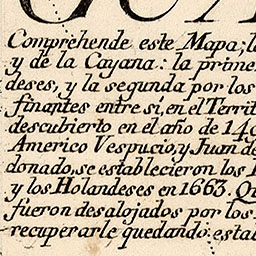 Comprehende este Mapa; l
y de la Cayana: la prime
deses, y la segunda por los
finantes entre si, en el Territ
descubierto en el año de 149
Americo Vespucio, y Juan de
donado, se establecieron los
y los Holandeses en 1663. Qu
fueron desalojados por los
recuperarle quedando estab